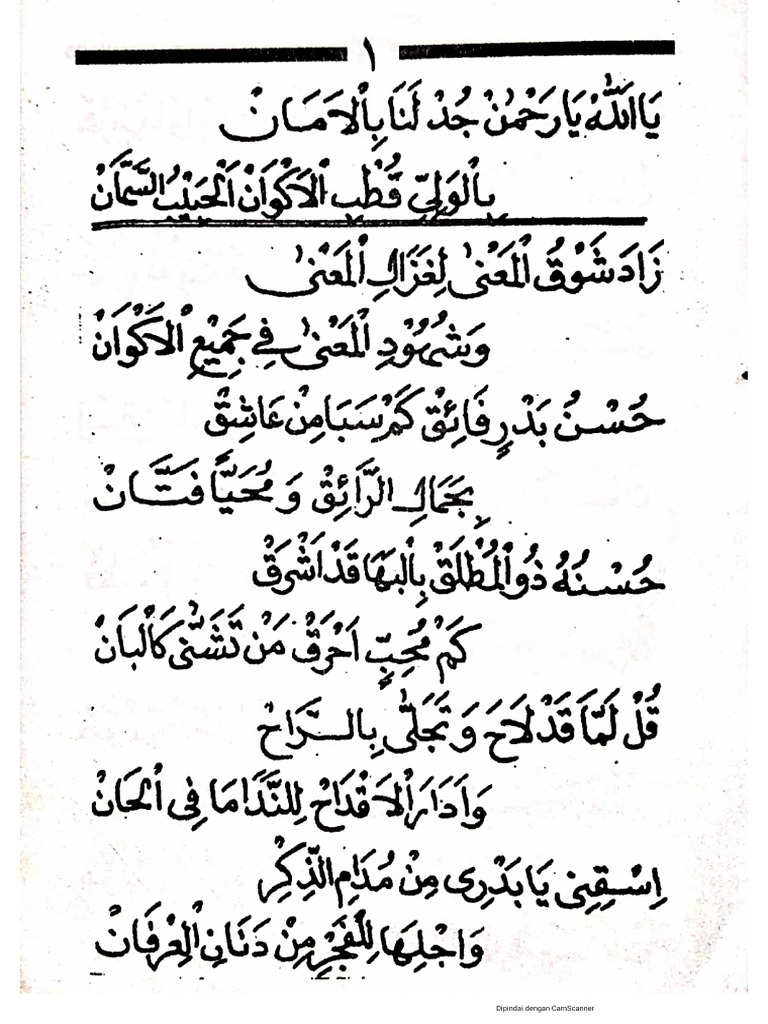 ١
يَا اَللّٰهْ يَا رَحْمٰنْ جُدْ لَنَا بِالْاَمَانْ
بِالْوَلِيِّ قُطْبِ الْاَكْوَانْ اَلْحَبِيْبُ السَّمَّانْ
زَادَ شَوْقُ الْمَعْنٰى لِغَزَالِ الْمَعْنٰى
وَشُهُوْدِ الْمَعْنٰى فِي جَمِيْعِ الْاَكْوَانْ
حُسْنُ بَدْرٍ فَائِقْ كَمْ سَبَا مِنْ عَاشِقْ
بِجَمَالِ الرَّائِقْ وَ مُحَيًّا فَتَّانْ
حُسْنُهُ ذُو الْمُطْلَقْ بِالْبَهَا قَدْ اَشْرَقْ
كَمْ مُحِبٍّ اَحْرَقْ مَنْ تَثَنّٰى كَالْبَانْ
قُلْ لَمَّا قَدْ لَاحَ وَ تَجَلّٰى بِالرَّاحْ
وَاَدَارَ الْاَقْدَاحْ لِلنَّدَامَا فِى الْحَانْ
اِسْقِنِى يَا بَدْرِى مِنْ مُدَامِ الذِّكِرْ
وَاجْلِهَا لِلْفَجْرِ مِنْ دَنَانِ الْعِرْفَانْ
Dipindai dengan CamScanner